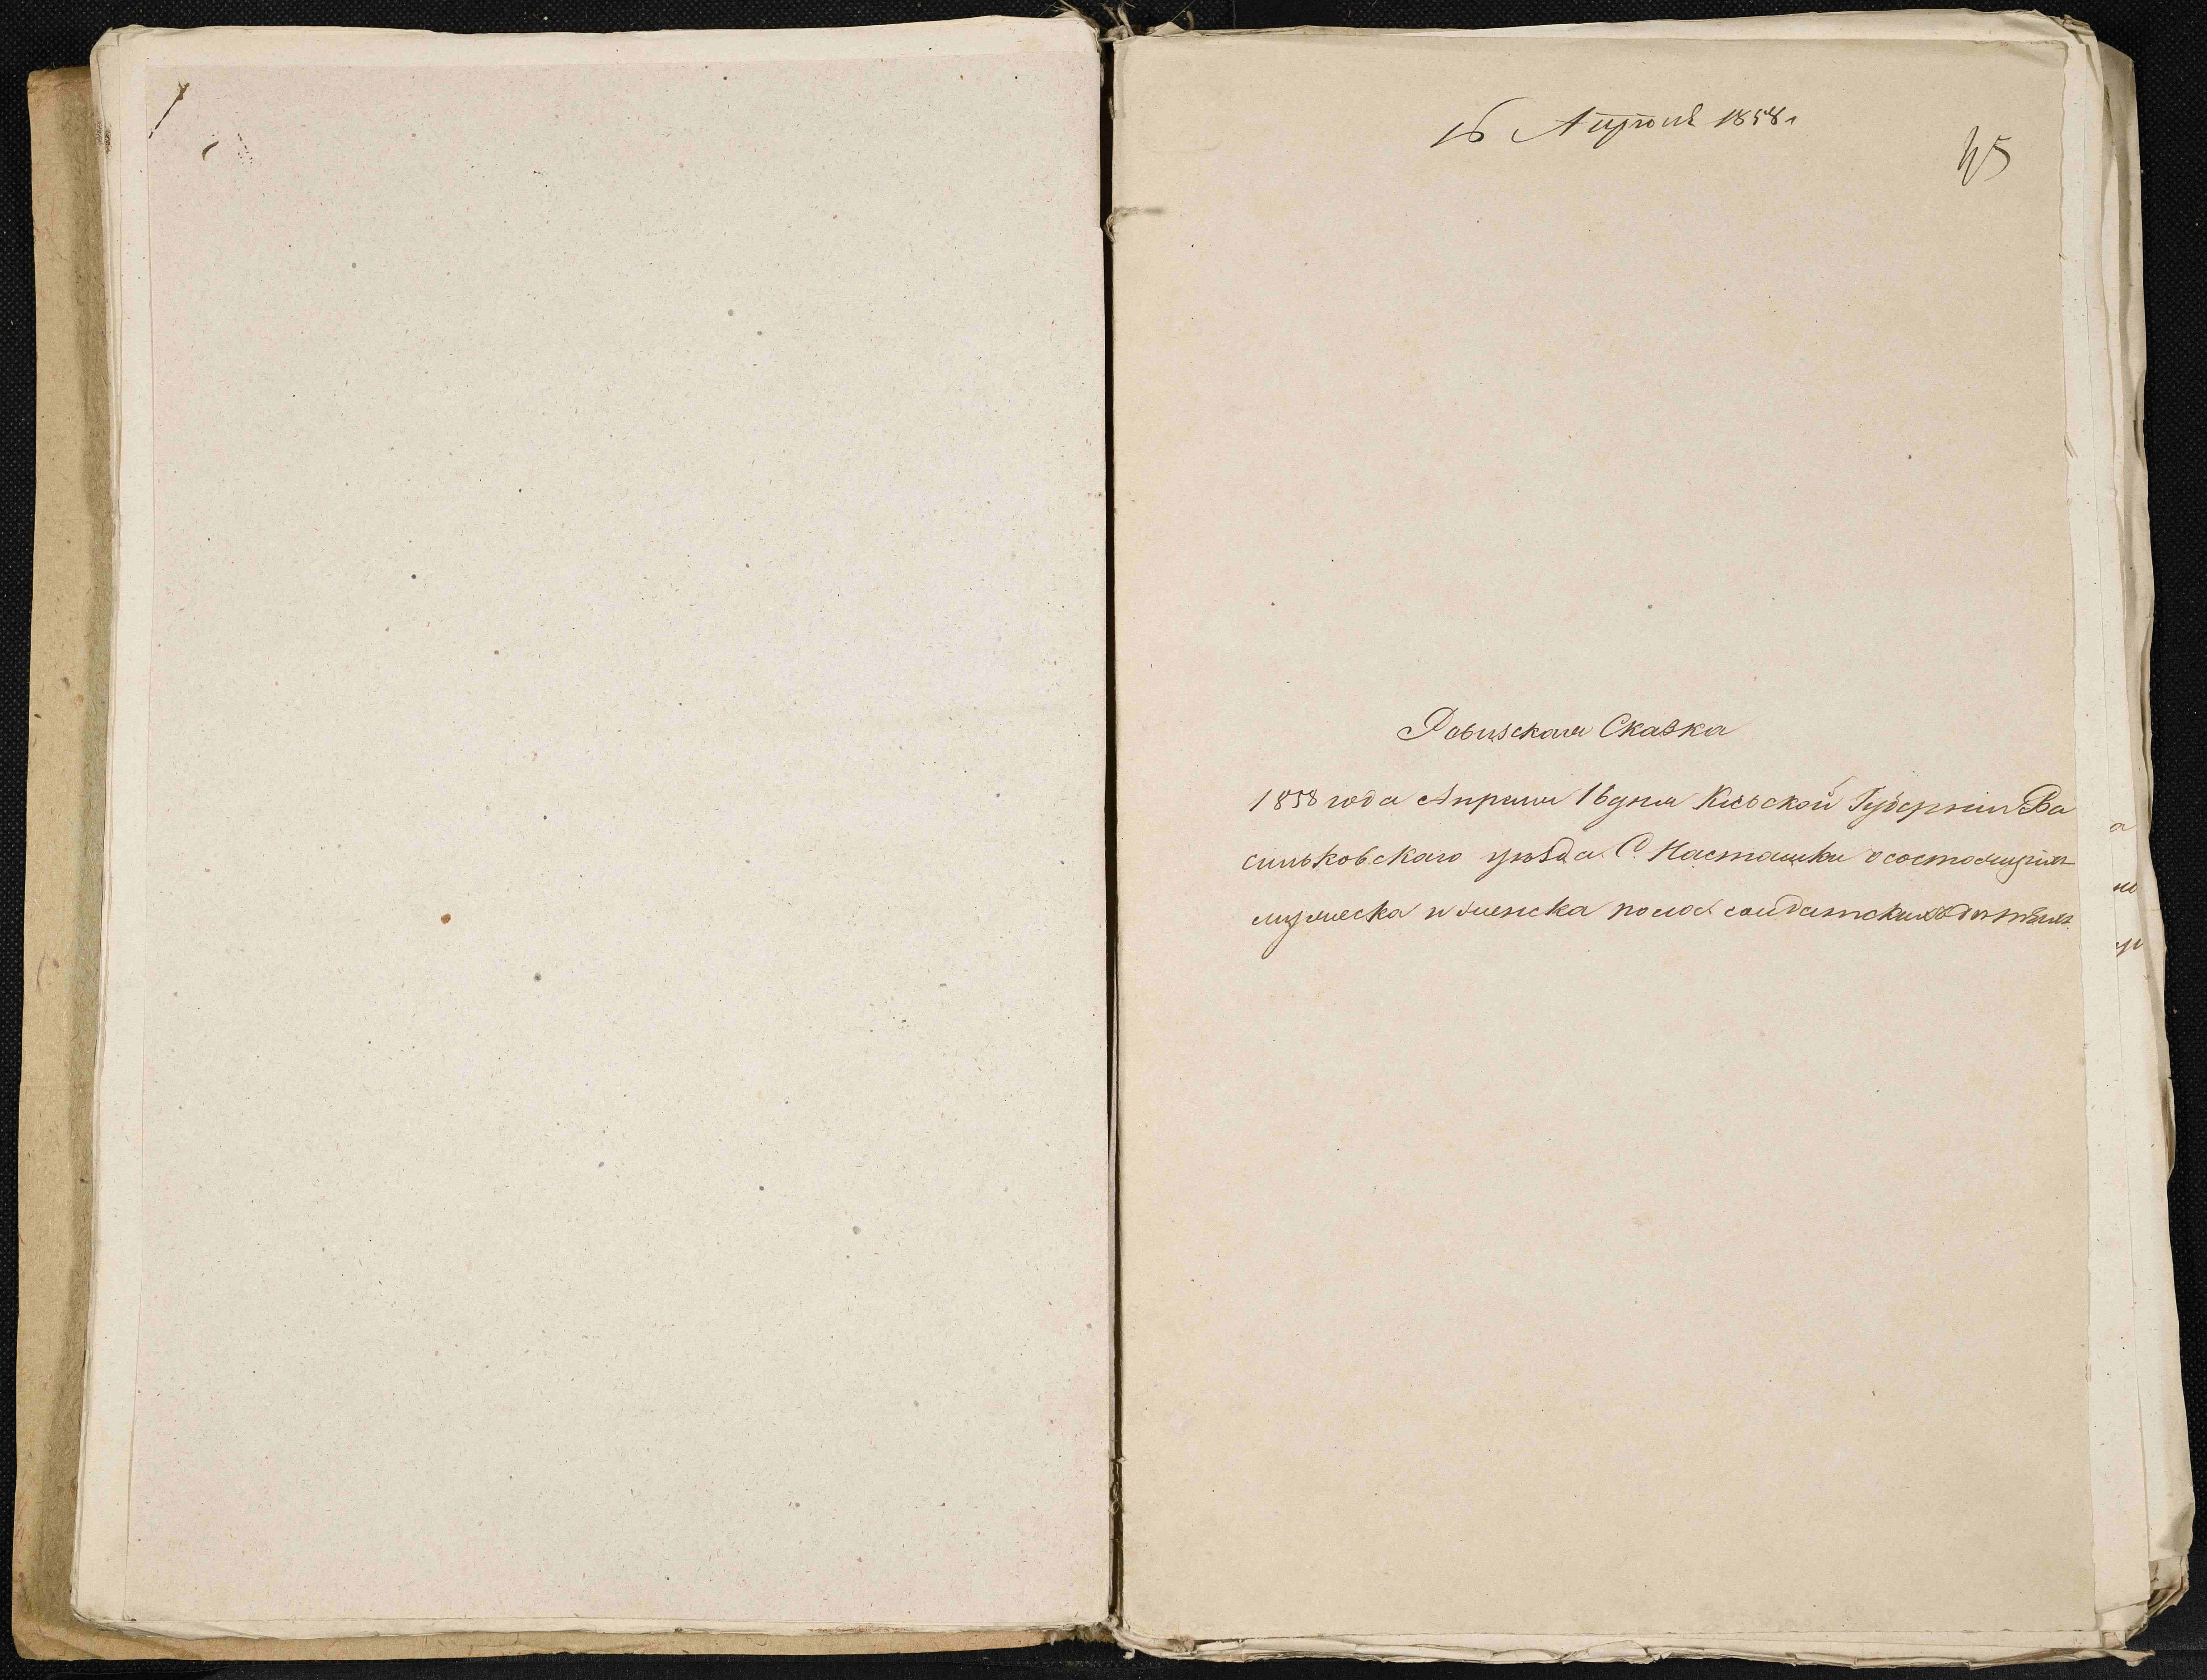 16 Апреля 1858 г
45
Ревизская Сказка
1858 года Апреля 16 дня Кіевской Губерніи Ва
сильковскаго уѣзда С. Насташки о состоящихъ
мужеска и женска пола солдатскихъ дѣтяхъ.